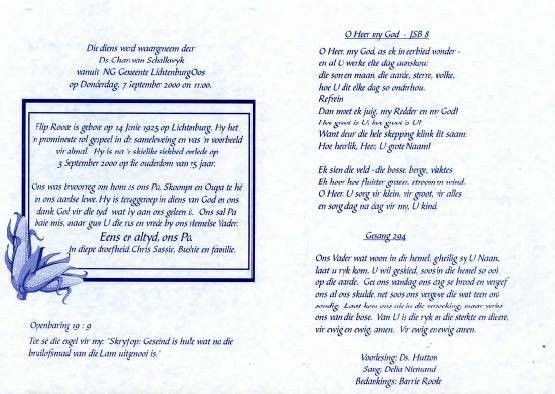 Die diens word waargeneem deur
Ds Chan van Schalkwyk
vanuit NG Gemeente Lichtenburg Oos
op Donderdag, 7 September 2000 om 11:00.
Flip Roode is gebore op 14 Junie 1925 op Lichtenburg. Hy het
'n prominente rol gespeel in die samelewing en was 'n voorbeeld
vir almal. Hy is na 'n skielike siekbed oorlede op
3 September 2000 op die ouderdom van 75 jaar.
Ons was bevoorreg om hom as ons Pa, Skoonpa en Oupa te hê
in ons aardse lewe. Hy is teruggeroep in diens van God en ons
dank God vir die tyd wat hy aan ons geleen is. Ons sal Pa
baie mis, maar gun U die rus en vrede by ons Hemelse Vader.
Eens en altyd, ons Pa.
In diepe droefheid Chris Sassie, Bushie en familie.
Openbaring 19 : 9
Toe sê die engel vir my: "Skryf op: Geseënd is hulle wat na die
bruilofsmaal van die Lam uitgenooi is."
O Heer my God - JSB 8
O Heer my God, as ek in eerbied wonder -
en al U werke elke dag aanskou:
die son en maan, die aarde, sterre, wolke,
hoe U dit elke dag so onderhou.
Refrein
Dan moet ek juig, my Redder en my God!
Hoe groot is U, hoe groot is U!
Want deur die hele skepping klink dit saam:
Hoe heerlik, Heer, U grote Naam!
Ek sien die veld - die bosse, berge, vlaktes
Ek hoor hoe fluister grasse, stroom en wind.
O Heer, U sorg vir klein, vir groot, vir alles
en sorg dag na dag vir my, U kind.
Gesang 294
Ons Vader wat woon in die hemel, geheilig sy U Naam,
laat u ryk kom, U wil geskied, soos in die hemel so ook
op die aarde. Gee ons vandag ons dag se brood en vergeef
ons al ons skulde, net soos ons vergewe die wat teen ons
sondig. Laat kom ons nie in die versoeking, maar verlos
ons van die bose. Van U is die ryk en die sterkte en die ere,
vir ewig en ewig, amen. Vir ewig en ewig amen.
Voorlesing: Ds. Hutton
Sang: Delia Niemand
Bedankings: Barrie Roode